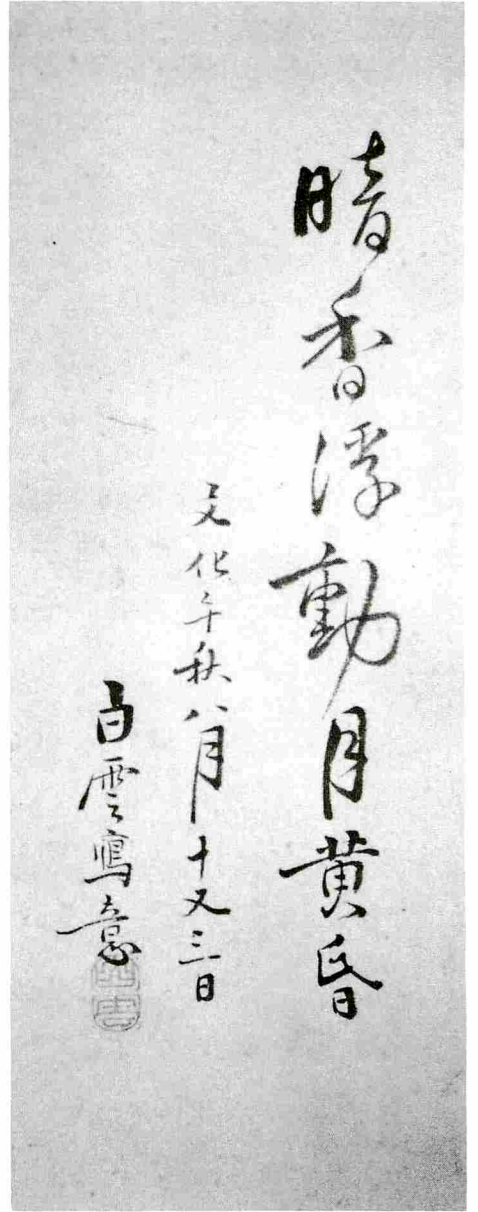 暗香浮動月黄昏
文化午秋八月十又三日
白雲寫意